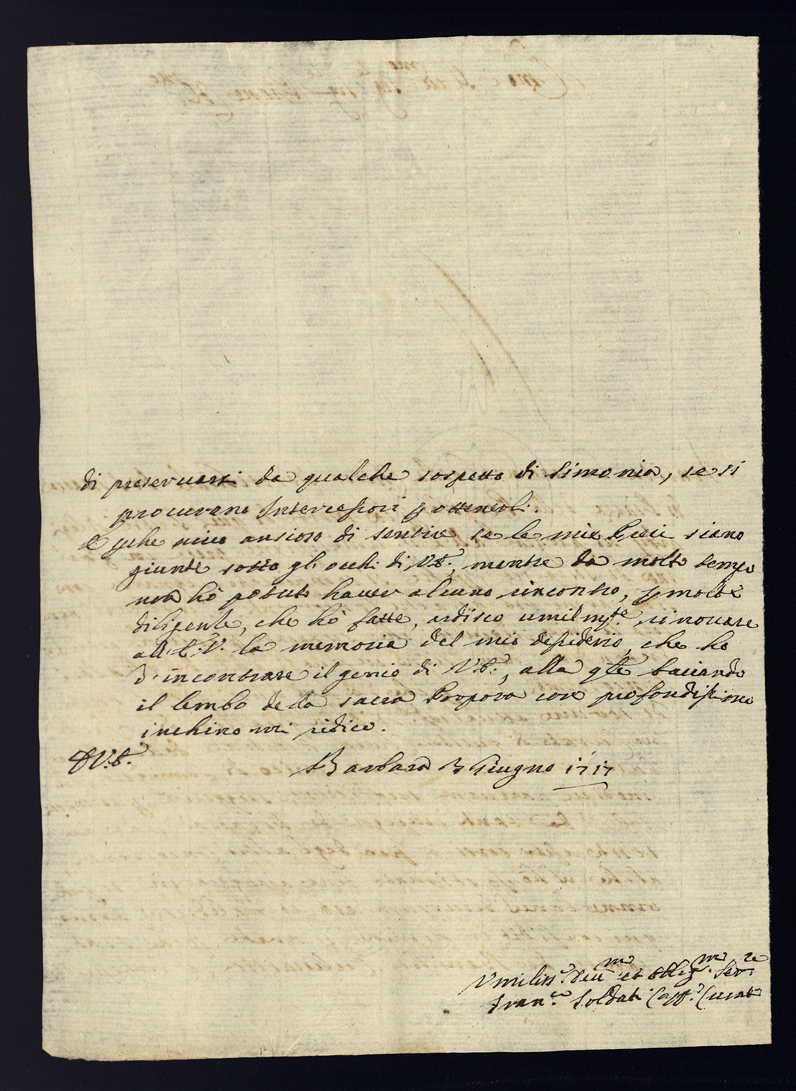 di preservarsi da qualche sospetto di Simonia, se si
procurano Intercessori p ottenerli.
E pche vivo ansioso di sentire se le mie siano
giunte sotto gli occhi di V.E., mentre da molto tempo
non hò potuto haver alcuno rincontro, p molte
diligente, che hò fatte, ardisco umilmte, rinovare
all' E.V. la memoria del mio desiderio, che ho
d'incontrare il genio di V.E., alla qle baciando
il lembo della sacra Porpora con profondissimo
inchino mi ridico.
D V.E.
Barbara 3 Giugno 1717
Umiliss.o Dev.mo et Obligmo Serre
Franco Soldati Curato